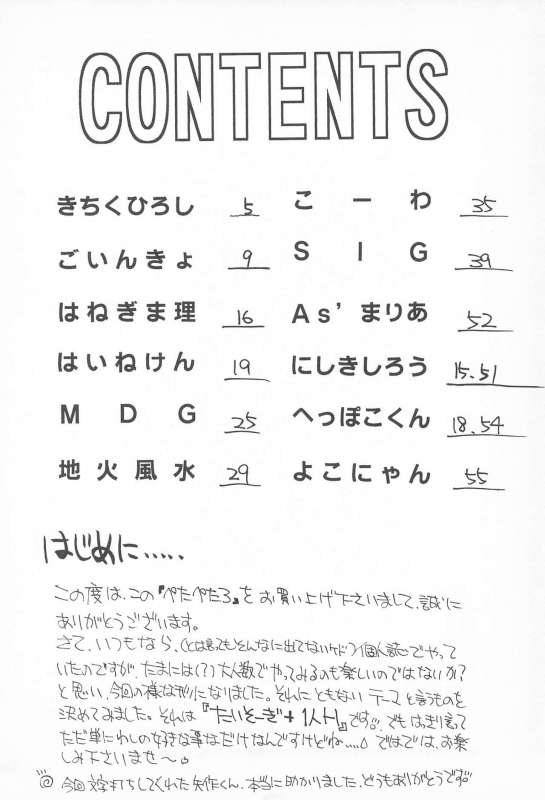 CONTENTS
きちくひろし 5
ごいんきょ 9
はねぎま理 16
はいねけん 19
MDG 25
地火風水 29
こーわ 35
SIG 39
As'まりあ 52
にしきしろう 15.51
へっぽこくん 18.54
よこにゃん 55
はじめに・・・・・
この度は、この『ぺたぺたろ』をお買い上げ下さいまして、誠に
ありがとうございます。
さて、いつもなら、(とは言ってもそんなに出てないケド)個人誌でやって
いたのですが、たまには(?)大人数でやってみるのも楽しいのではないか?
と思い、今回の様な形になりました。それにともない テーマと言うものを
決めてみました。それは『たいそーぎ+1人H』です。でもはっきり言って
ただ単にわしの好きな事なだけなんですけどね・・・・。ではでは、お楽
しみ下さいませ〜。
今回文字打ちしてくれた矢作くん、本当に助かりました、どうもありがとうです。